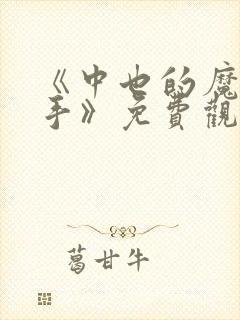 《中也的魔
手》免費觀
葛甘牛